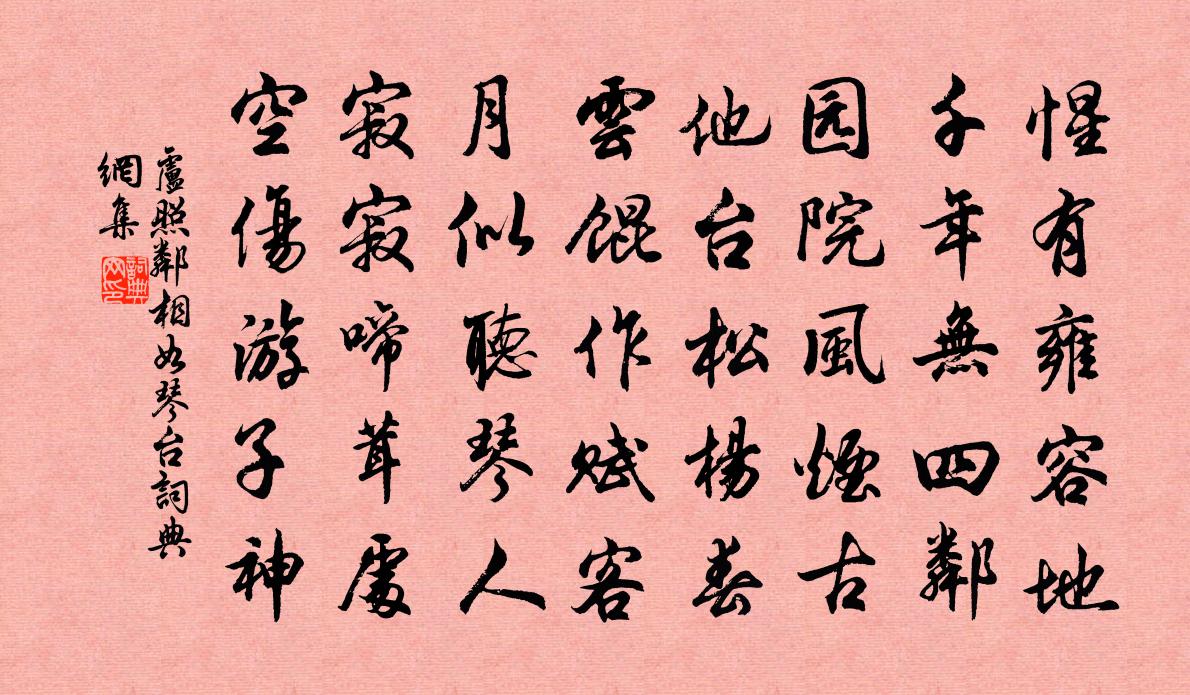 惺有雍容地
千年無四鄰
园院風煙古
他台松楊春
雲餛作賦客
月似聽琴人
寂寂啼茸處
空傷游子神
盧照鄰相如琴台詞典
網集
詞典網印